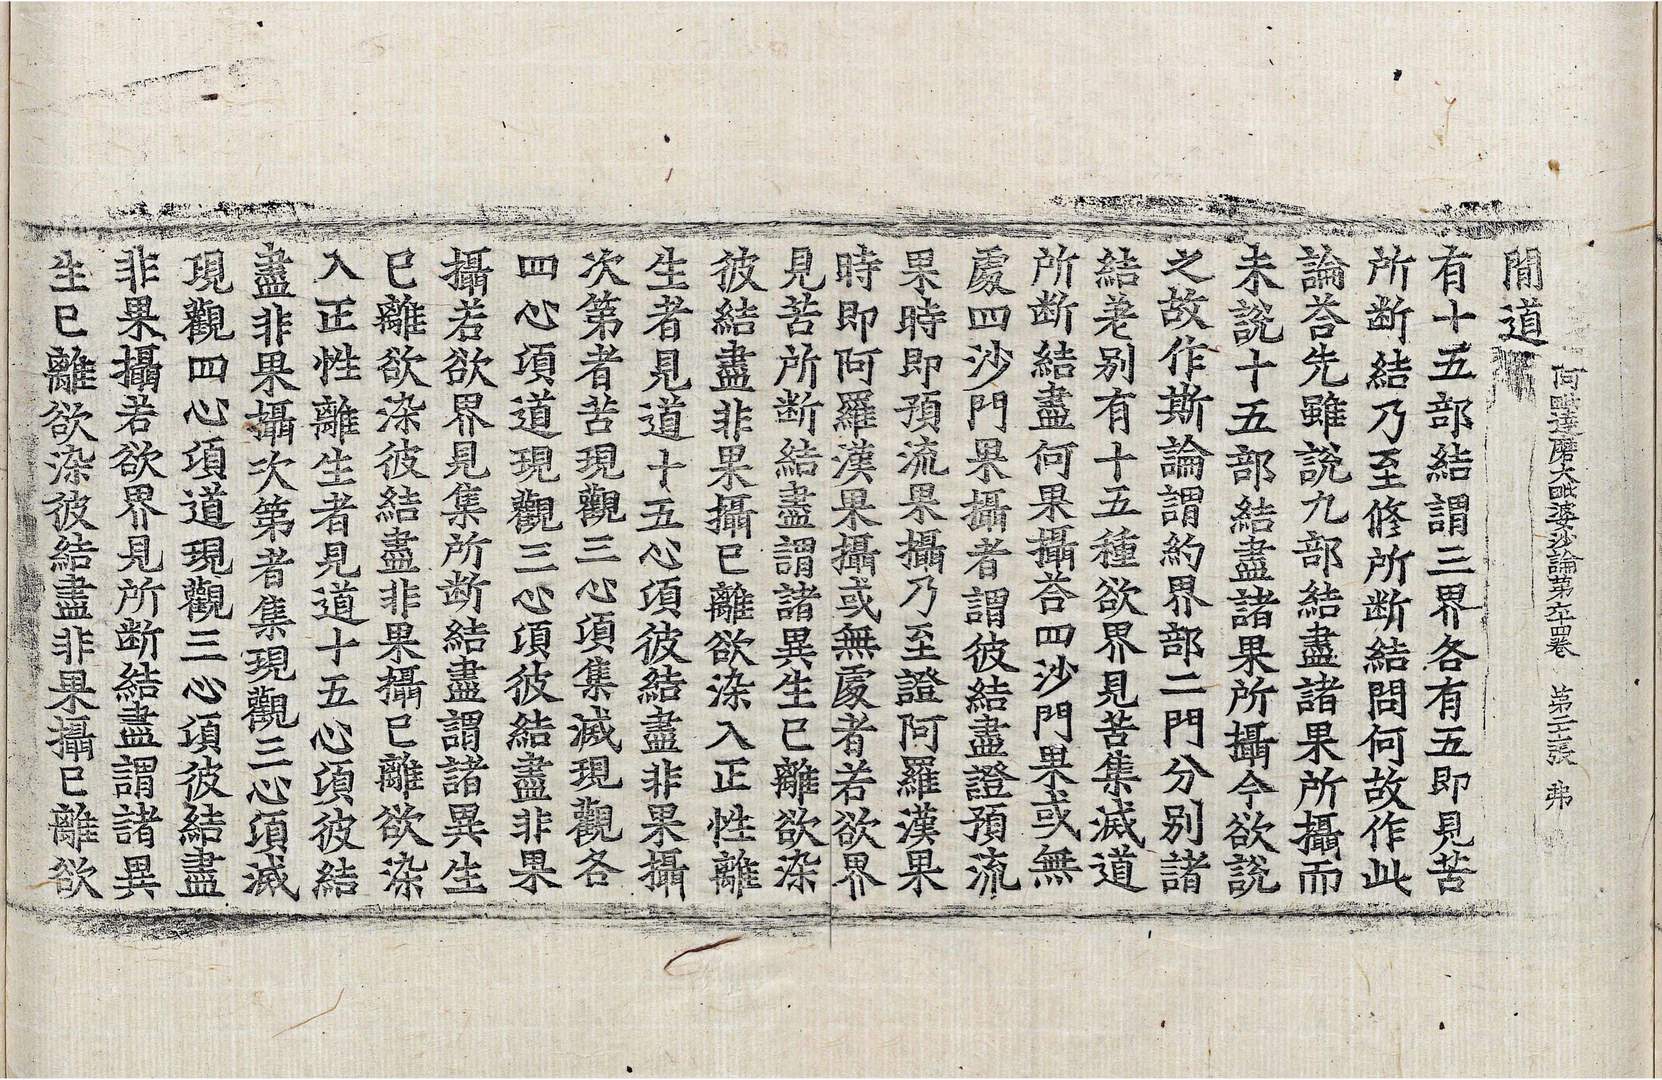 阿毗達磨大毗婆沙論第六十四卷　第二十張　弗
閒道
有十五部結謂三界各有五即見苦
所断結乃至修所断結問何故作此
論荅先雖說九部結盡諸果所攝而
未說十五部結盡諸果所攝今欲說
之故作斯論謂約界部二門分別諸
結差別有十五種欲界見苦集滅道
所断結盡何果攝荅四沙門果或無
處四沙門果攝者謂彼結盡證預流
果時即預流果攝乃至證阿羅漢果
時即阿羅漢果攝或無處者若欲界
見苦所断結盡謂諸異生已離欲染
彼結盡非果攝已離欲染入正性離
生者見道十五心頃彼結盡非果攝
次第者苦現觀三心頃集滅現觀各
四心頃道現觀三心頃彼結盡非果
攝若欲界見集所断結盡謂諸異生
已離欲染彼結盡非果攝已離欲染
入正性離生者見道十五心頃彼結
盡非果攝次第者集現觀三心頃滅
現觀四心頃道現觀三心頃彼結盡
非果攝若欲界見所断結盡謂諸異
生已離欲染彼結盡非果攝已離欲